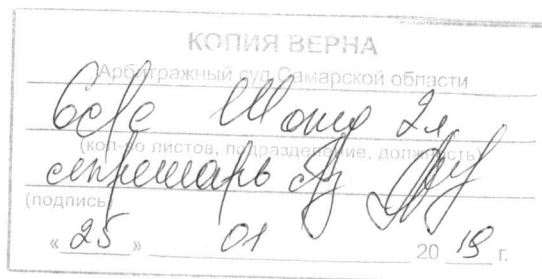 КОПИЯ ВЕРНА
Арбитражный суд Самарской области
2л
(кол-во листов, подразделение, должность)
секретарь с/з
(подпись)
« 25 » 01 20 19 г.